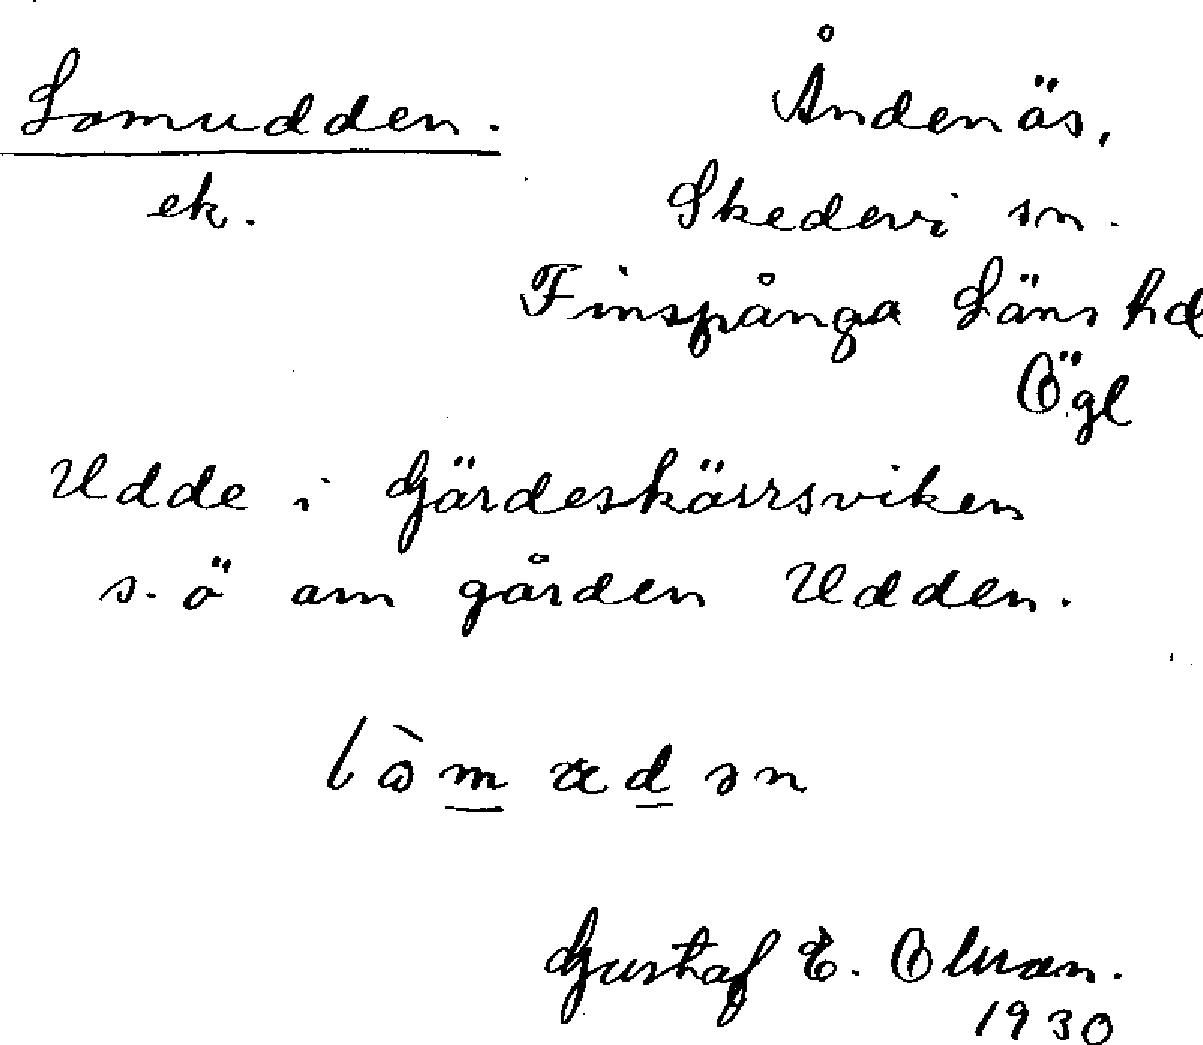 Lomudden.
ek.
Åndenäs,
Skedevi sn.
Finspånga Läns hd
Ögl
Udde i Gärdeskärrsviken
s. ö om gården Udden.
Gustaf E.
1930